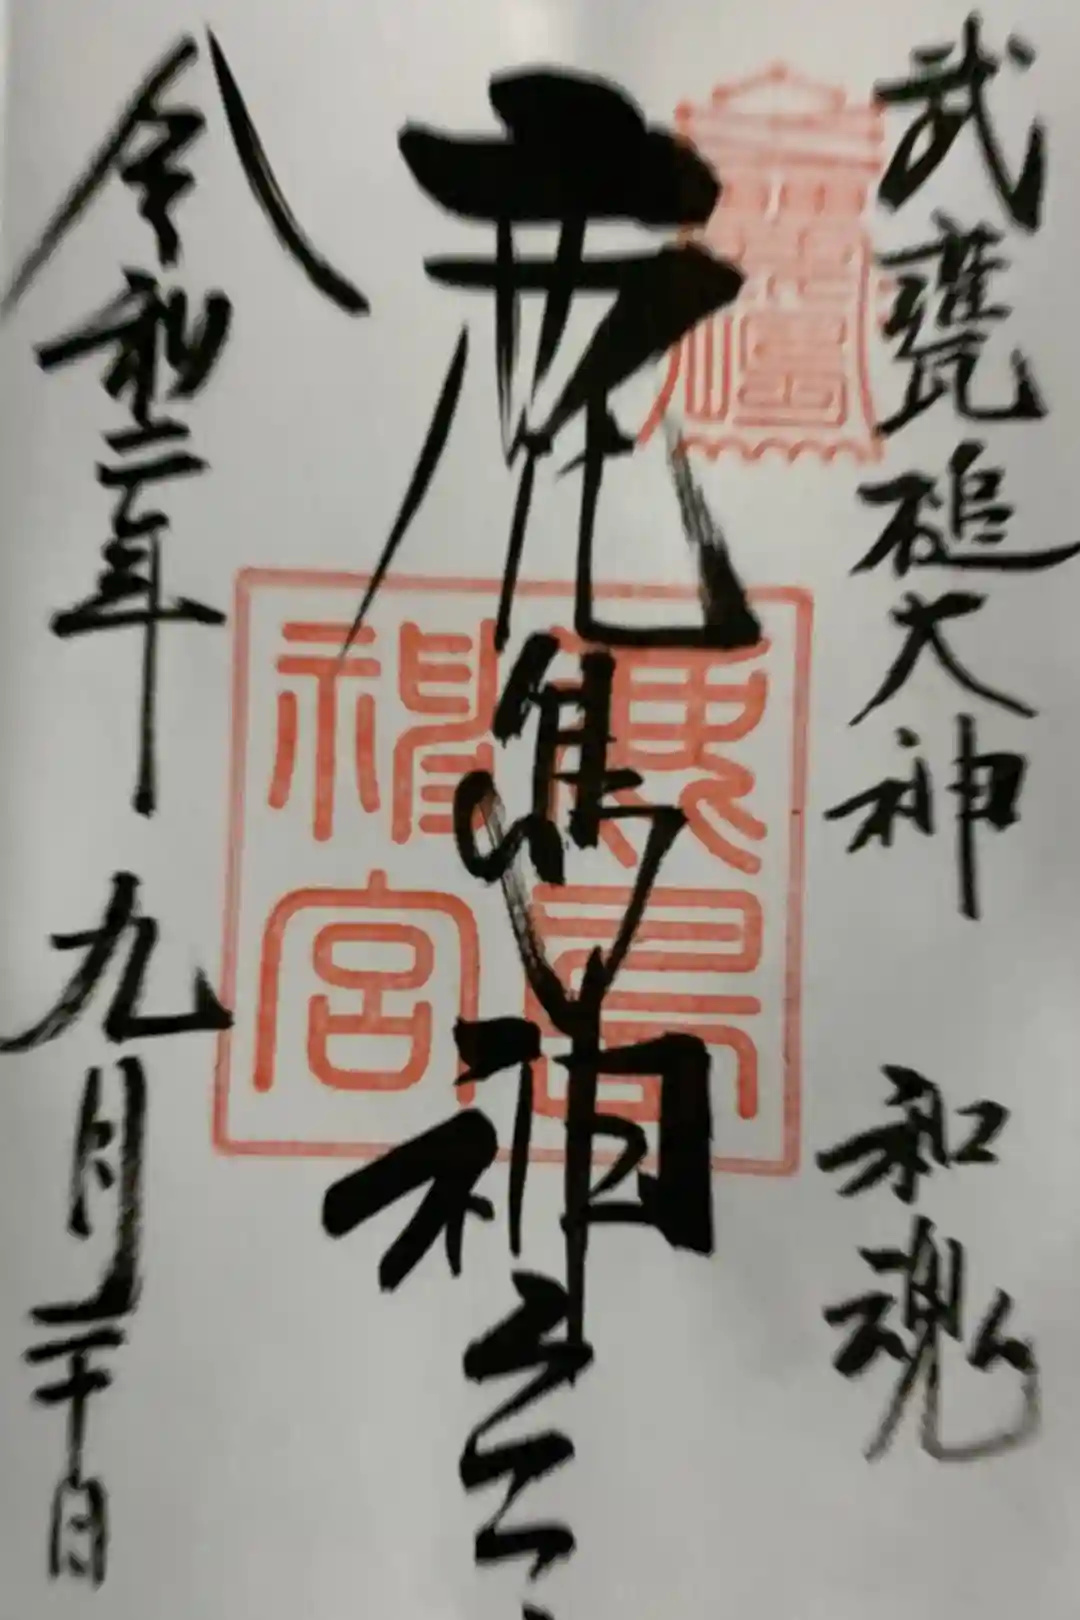 武甕槌大神 和魂
鹿島神宮
鹿島
神宮
令和二年 九月二十日